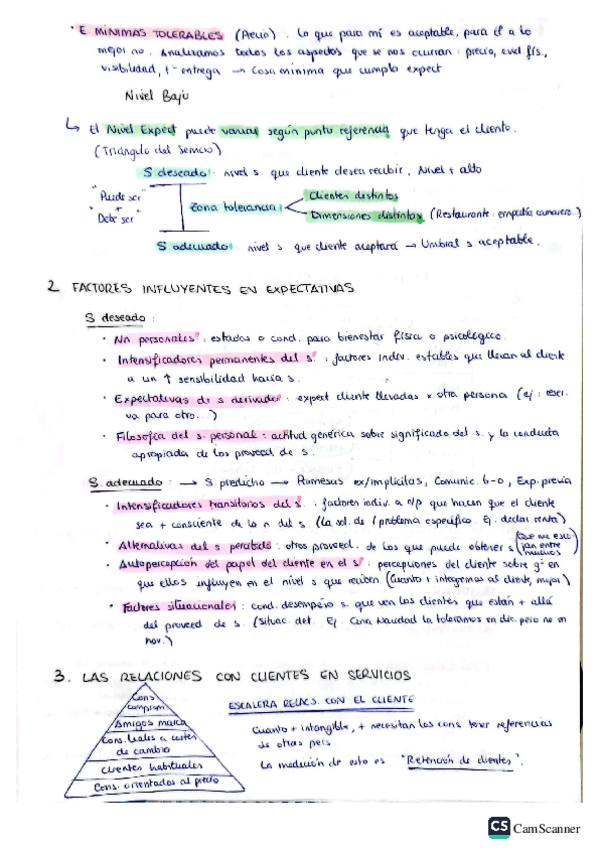 · E MÍNIMAS TOLERABLES (Precio). Lo que para mí es aceptable, para él a lo
mejor no. Analizamos todos los aspectos que se nos ocurran: precio, evid fís.,
visibilidad, tº entrega → Cosa mínima que cumpla expect
Nivel Bajo
↳ El Nivel Expect puede variar según punto referencia que tenga el cliente.
(Triángulo del Servicio)
S deseado: nivel s. que cliente desea recibir. Nivel + alto
"Puede ser"
+
"Debe ser"
Zona tolerancia:
Clientes distintos
Dimensiones distintas (Restaurante: empatía camarero...)
S adecuado: nivel s que cliente aceptará → Umbral s aceptable.
2 FACTORES INFLUYENTES EN EXPECTATIVAS
S deseado:
· Nn personales: estados o cond. para bienestar físico o psicológico.
· Intensificadores permanentes del s.: factores indiv. estables que llevan al cliente
a un ↑ sensibilidad hacia s.
· Expectativas de s derivadas: expect cliente llevadas x otra persona (ej: reser.
va para otro...)
· Filosofía del s. personal: actitud genérica sobre significado del s. y la conducta
apropiada de los proveed de s.
S. adecuado: → S predicho → Promesas ex/implícitas, Comunic. b-o, Exp. previa
· Intensificadores transitorios del s.: factores indiv. a c/p que hacen que el cliente
sea + consciente de la n del s. (La sol. de 1 problema específico. Ej. declar. renta)
· Alternativas del s percibido: otros proveed. de los que puede obtener s (Que me esco
jan entre
muchos)
· Autopercepción del papel del cliente en el s: percepciones del cliente sobre gº en
que ellos influyen en el nivel s que reciben (Cuanto + integremos al cliente, mejor)
· Factores situacionales: cond. desempeño s. que ven los clientes que están + allá
del proveed de s. (Situac. det. Ej. Cena Navidad la toleramos en dic. pero no en
nov.)
3. LAS RELACIONES CON CLIENTES EN SERVICIOS
Cons
comprom
Amigos marca
Cons. leales a costes
de cambio
Clientes habituales
Cons. orientados al precio
ESCALERA RELACS. CON EL CLIENTE
Cuanto + intangible, + necesitan los cons tener referencias
de otras pers.
La medición de esto es "Retención de clientes".
CS CamScanner